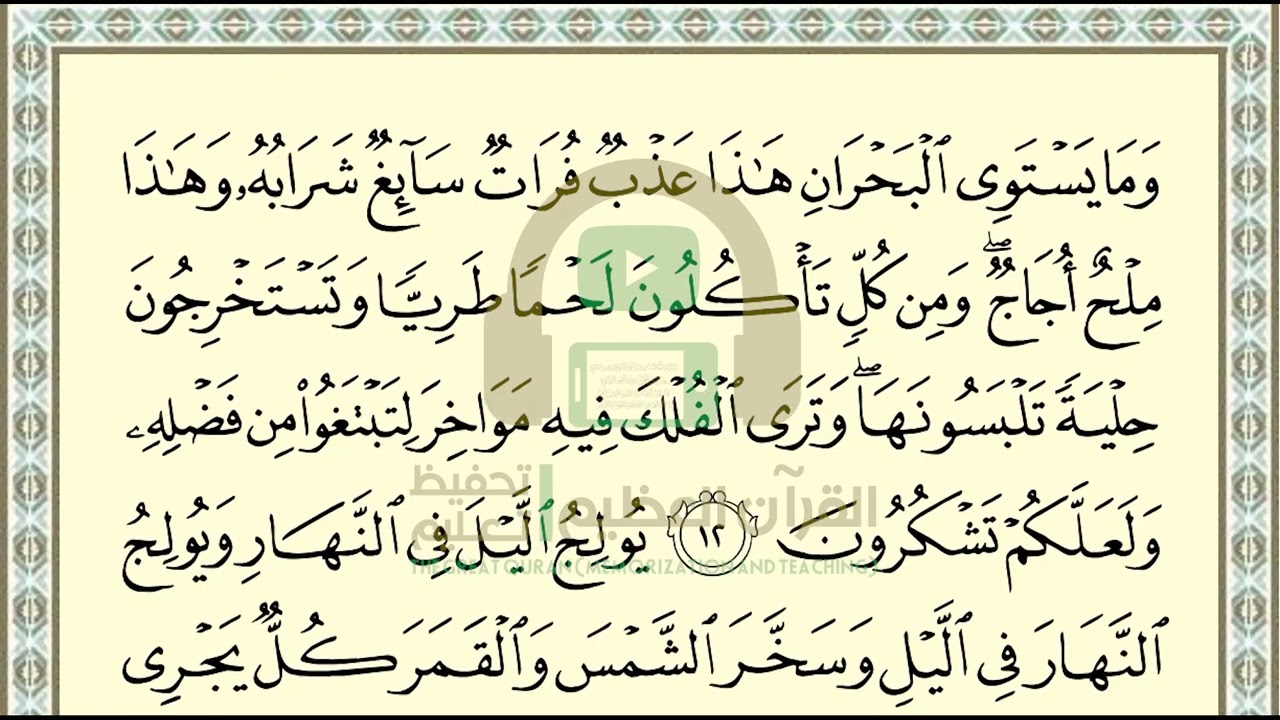 وَمَا يَسۡتَوِي ٱلۡبَحۡرَانِ هَٰذَا عَذۡبٞ فُرَاتٞ سَآئِغٞ شَرَابُهُۥ وَهَٰذَا
مِلۡحٌ أُجَاجٞۖ وَمِن كُلّٖ تَأۡكُلُونَ لَحۡمٗا طَرِيّٗا وَتَسۡتَخۡرِجُونَ
حِلۡيَةٗ تَلۡبَسُونَهَاۖ وَتَرَى ٱلۡفُلۡكَ فِيهِ مَوَاخِرَ لِتَبۡتَغُواْ مِن فَضۡلِهِۦ
وَلَعَلَّكُمۡ تَشۡكُرُونَ ١٢ يُولِجُ ٱلَّيۡلَ فِي ٱلنَّهَارِ وَيُولِجُ
ٱلنَّهَارَ فِي ٱلَّيۡلِ وَسَخَّرَ ٱلشَّمۡسَ وَٱلۡقَمَرَ كُلّٞ يَجۡرِي
القرآن العظيم | تحفيظ تعليم
THE GREAT QURAN (MEMORIZATION AND TEACHING)